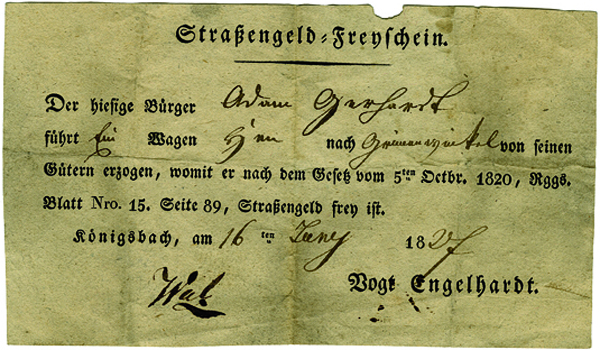 Straßengeld=Freyschein.
Der hiesige Bürger Adam Gerhardt
führt Ein Wagen Heu nach Grünenwinkel von seinen
Gütern erzogen, womit er nach dem Gesetz vom 5ten Octbr. 1820, Rggs.
Blatt Nro. 15. Seite 89, Straßengeld frey ist.
Königsbach, am 16 ten Juny 1827
Vogt Engelhardt.